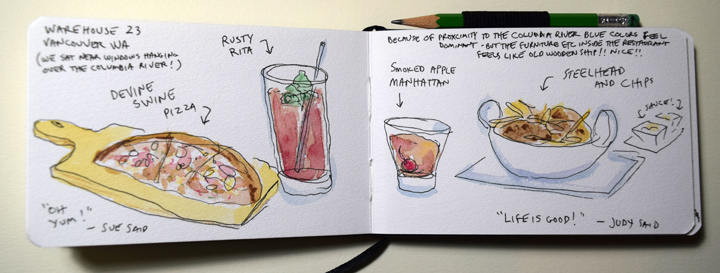 WAREHOUSE 23
VANCOUVER WA
(WE SAT NEAR WINDOWS HANGING
OVER THE COLUMBIA RIVER!)
RUSTY
RITA
DEVINE
SWINE
PIZZA
"OH
YUM!"
- SUE SAID
BECAUSE OF PROXIMITY TO THE COLUMBIA RIVER BLUE COLORS FEEL
DOMINANT - BUT THE FURNITURE ETC INSIDE THE RESTAURANT
FEELS LIKE OLD WOODEN SHIP!! NICE!!
SMOKED APPLE
MANHATTAN
STEELHEAD
AND CHIPS
SAUCE!
"LIFE IS GOOD!" - JUDY SAID